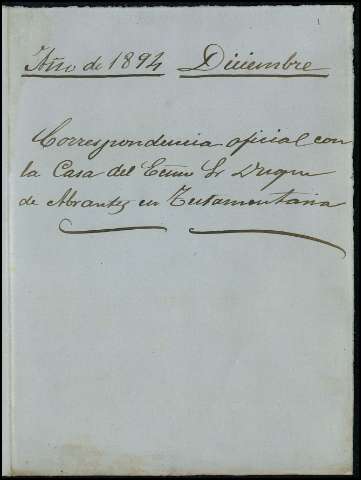 1
Año de 1894 Diciembre
Correspondencia oficial con
la Casa del Exmo Sr Duque
de Abrantes en Testamentaria